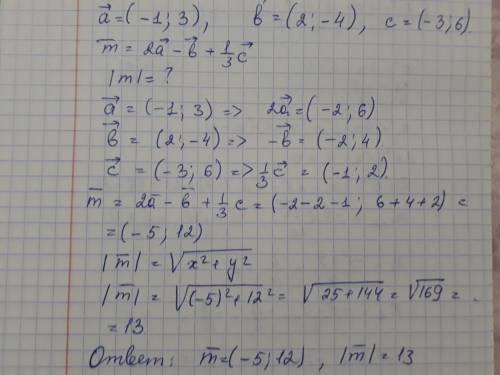 a⃗ = (-1; 3), b⃗ = (2; -4), c = (-3; 6).
m̅ = 2a⃗ - b⃗ + 1/3 c⃗
|m| = ?
a⃗ = (-1; 3) => 2a⃗ = (-2; 6)
b⃗ = (2; -4) => -b⃗ = (-2; 4)
c⃗ = (-3; 6) => 1/3 c⃗ = (-1; 2).
m̅ = 2a̅ - b̅ + 1/3 c = (-2-2-1; 6+4+2) =
= (-5; 12)
|m̅| = √(x² + y²)
|m̅| = √((-5)² + 12²) = √(25+144) = √169 =
= 13
Ответ: m̅ = (-5; 12), |m̅| = 13